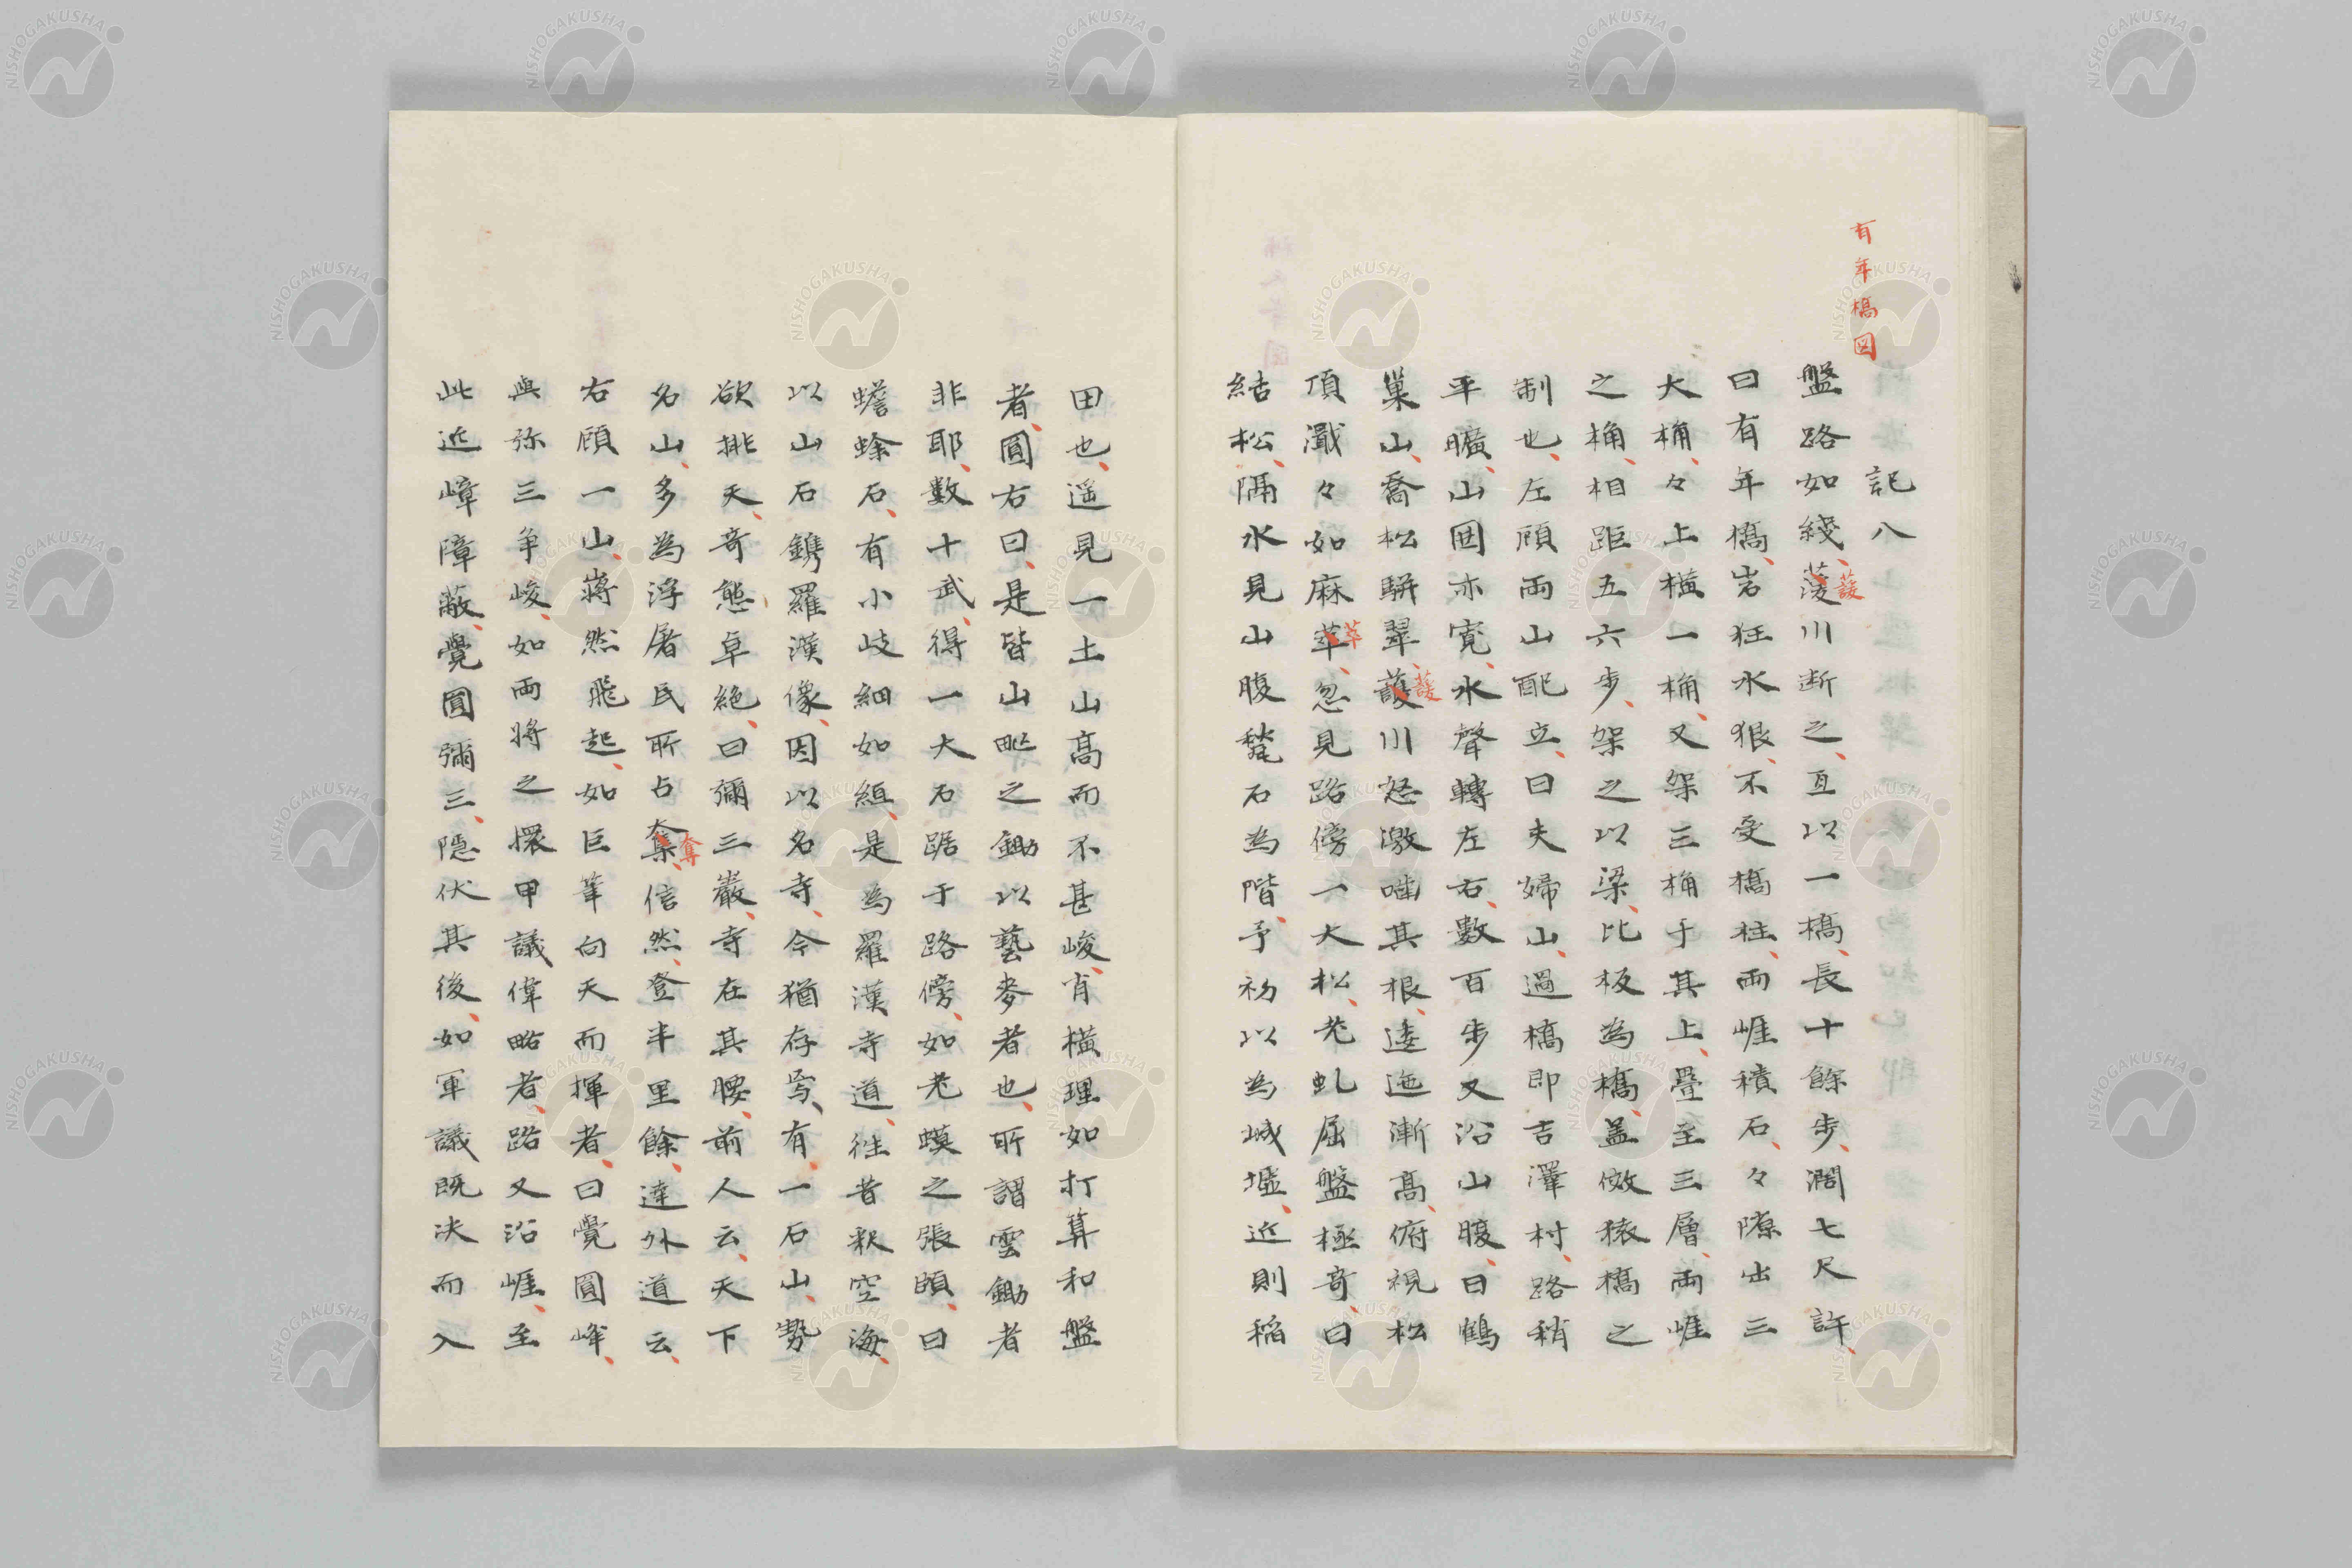 有年橋図
記八
盤路如綫、蓤川断之、亙以一橋、長十餘步、濶七尺許、
蔆
曰有年橋、岩狂水狠、不受橋柱、兩崕積石、々隙出三
大桷、々上横一桷、又架三桷于其上、疊至三層、兩崕
之桷、相距五六步、架之以梁、比板為橋、盖倣猿橋之
制也、左顧兩山配立、曰夫婦山、過橋即吉澤村、路稍
平曠、山囲亦寛、水聲轉左右、數百步又沿山腹、曰鶴
巢山、喬松駢翠、蔆川怒激囓其根、逶迤漸髙、俯視松
蔆
頂濈々如麻萃、忽見路傍一大松、老虬屈盤極竒、曰
萃
結松、隔水見山腹甃石為階、予初以為城墟、近則稲
田也、遥見一土山髙而不甚峻、肯横理如打算和盤
者、圓右曰、是皆山甿之鋤以藝麥者也、所謂雲鋤者
非耶、數十武、得一大石踞于路傍、如老蟆之張頤、曰
蟾蜍石、有小歧細如絙、是為羅漢寺道、徃昔釈空海、
以山石鐫羅漢像、因以名寺、今猶存焉、有一石山、勢
欲排天、竒態卓絶、曰彌三巖、寺在其腰、前人云、天下
名山、多為浮屠氏所占奪、信然、登半里餘、達外道云、
奪
右顧一山、蔣然飛起、如巨筆向天而揮者、曰覺圓峰、
與弥三争峻、如兩将之擐甲議偉略者、路又沿崕、至
此近嶂障蔽、覺圓彌三、隠伏其後、如軍議既决而入
NISHOGAKUSHA